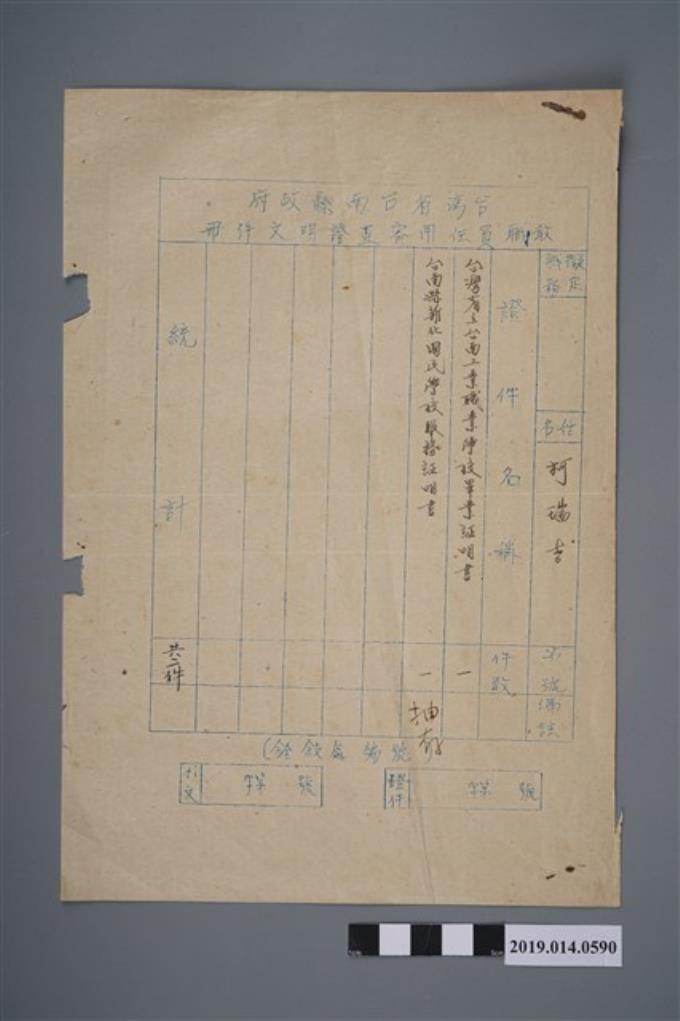 台湾省台南縣政府
敎職員任用審查證明文件冊
擬定
職務
姓名
柯瑞吉
號
備註
證件名稱
件數
台灣省立台南工業職業學校畢業証明書
一
台南縣新化國民學校服務証明書
一
抽存
統計
共二件
(銓敘處編號
證件
字第 號
引文
字第 號
2019.014.0590